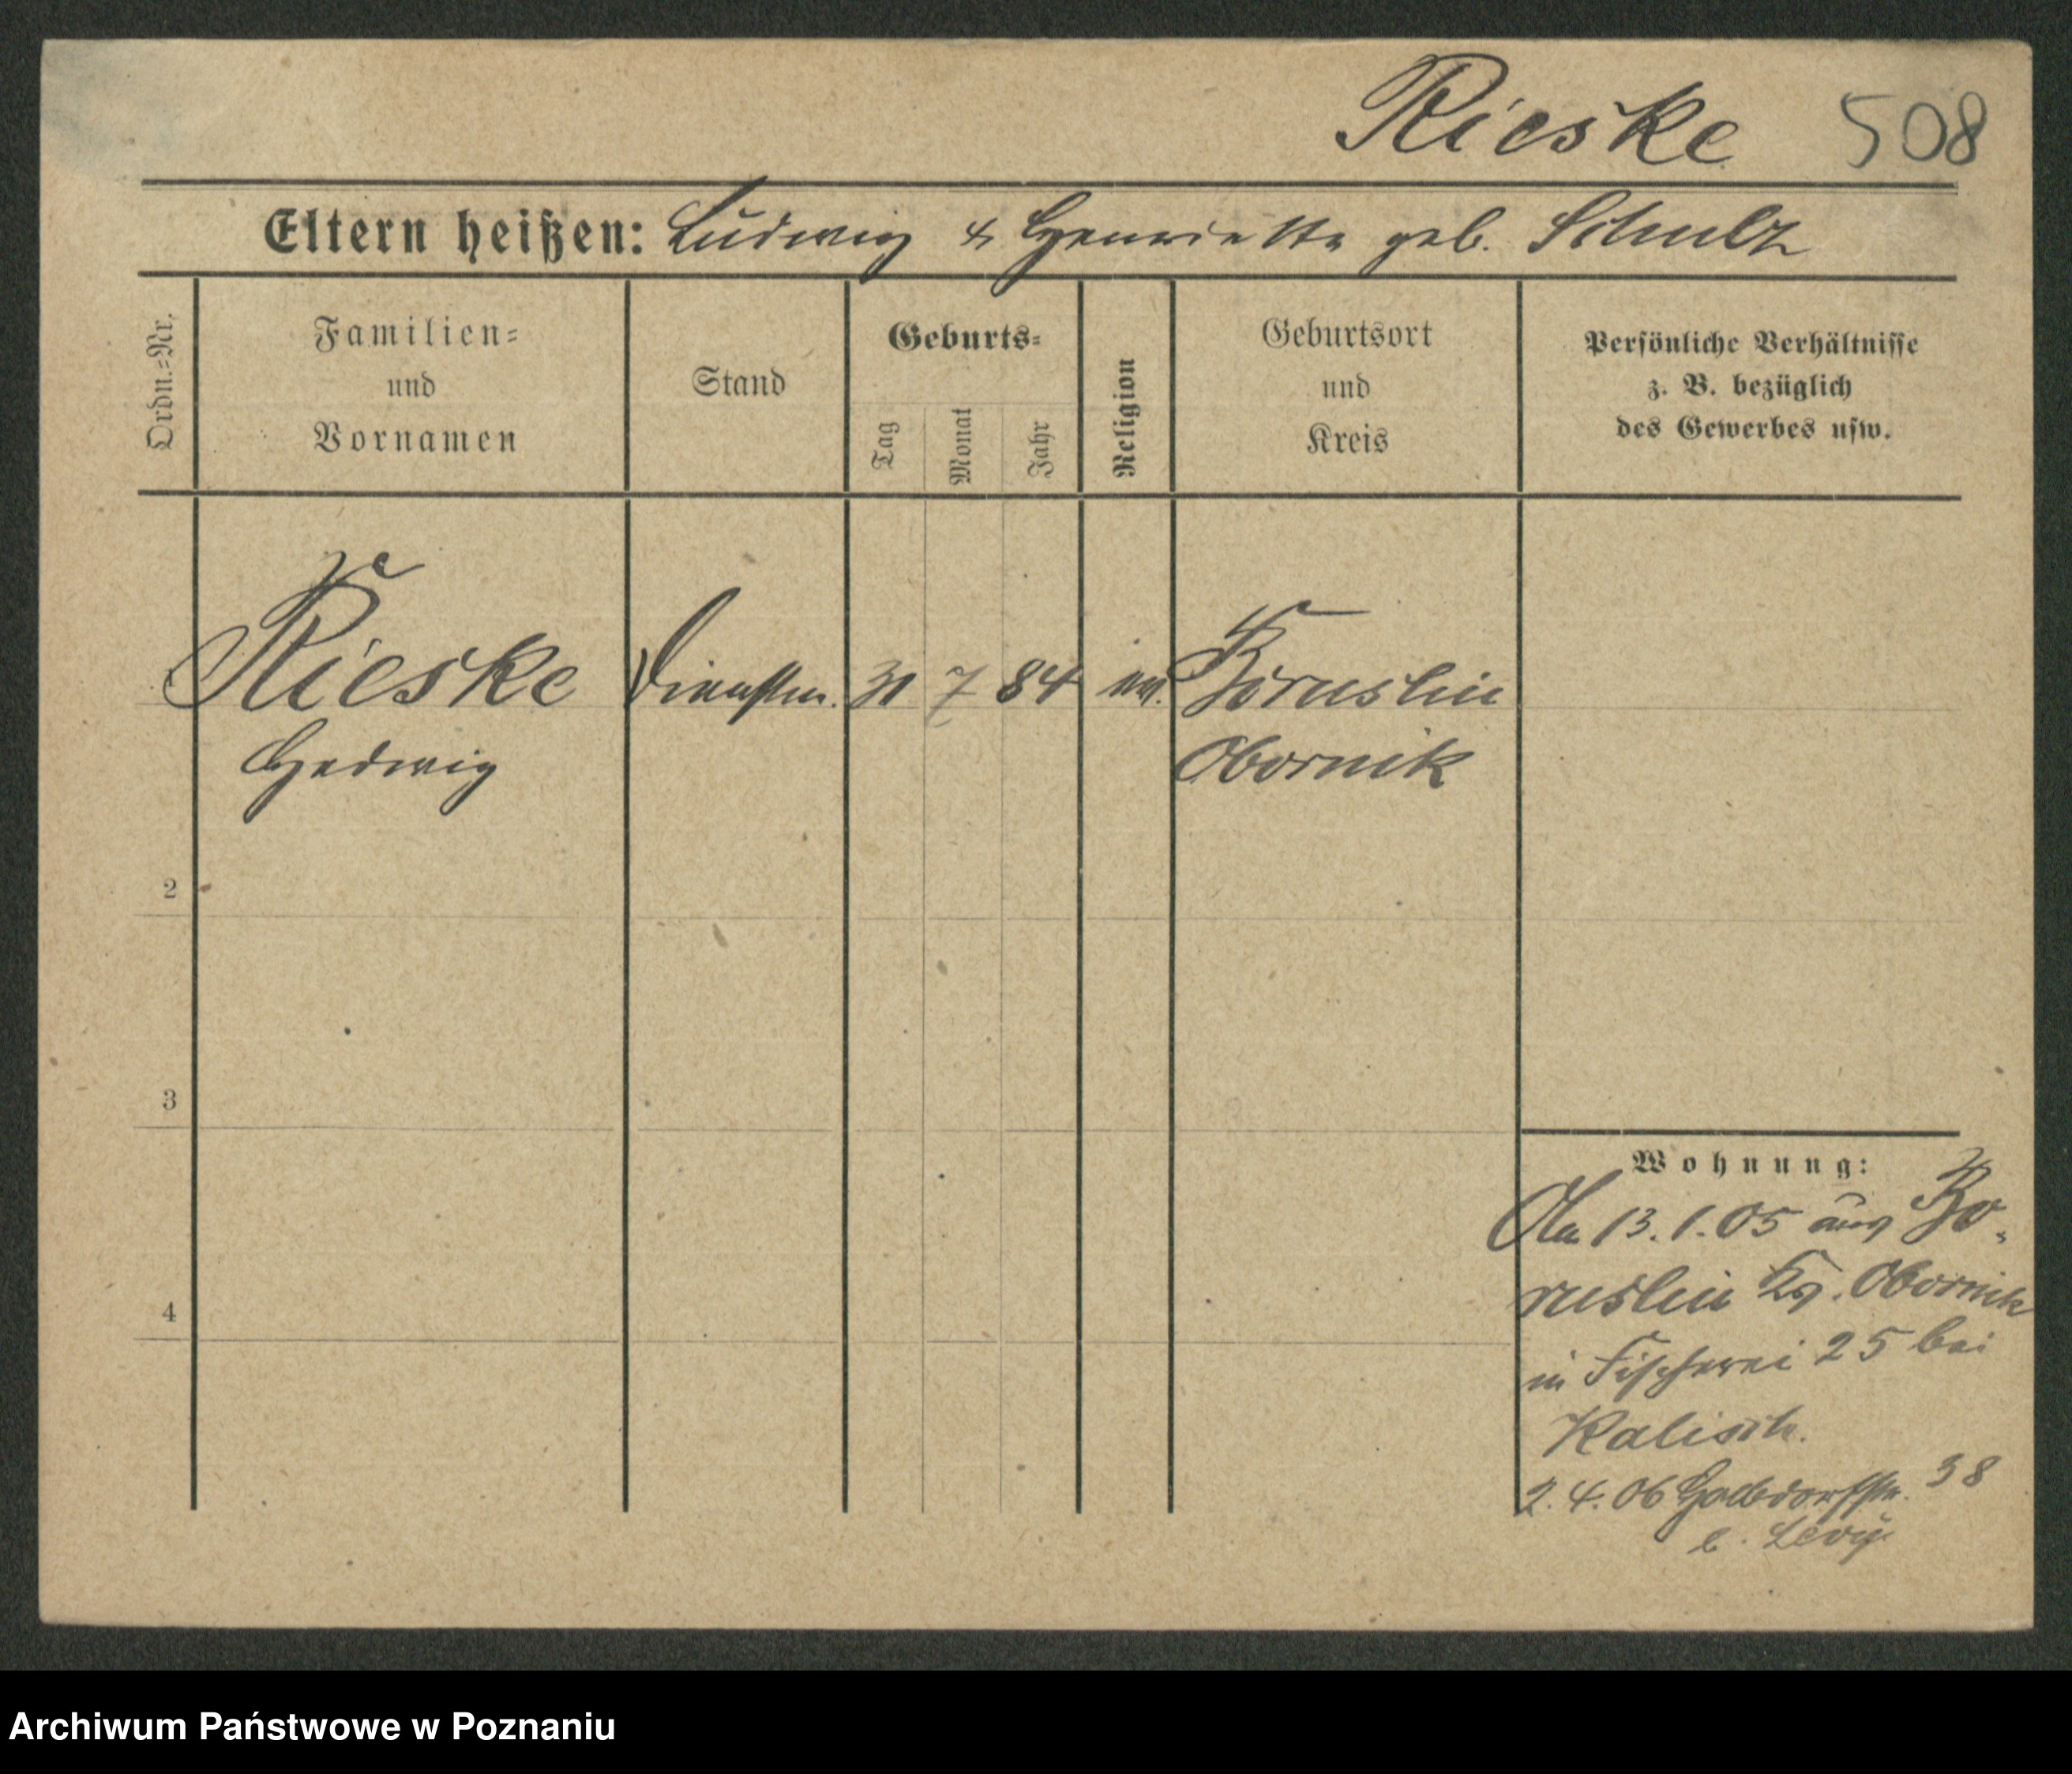 Rieske 508
Eltern heißen: Ludwig & Henriette geb. Schulz
Ordn.=Nr.
Familien=
und
Vornamen
Stand
Geburts=
Tag
Monat
Jahr
Religion
Geburtsort
und
Kreis
Persönliche Verhältnisse
z. B. bezüglich
des Gewerbes usw.
Rieske Dienstm. 31 7 84 ev. Boruslin
Hedwig Obornik
2
3
4
Wohnung:
Am 13.1.05 aus Bo-
ruslin Kr. Obornik
in Fischerei 25 bei
Kalisch.
2.4.06 Halbdorfstr. 38
b. Levy
Archiwum Państwowe w Poznaniu